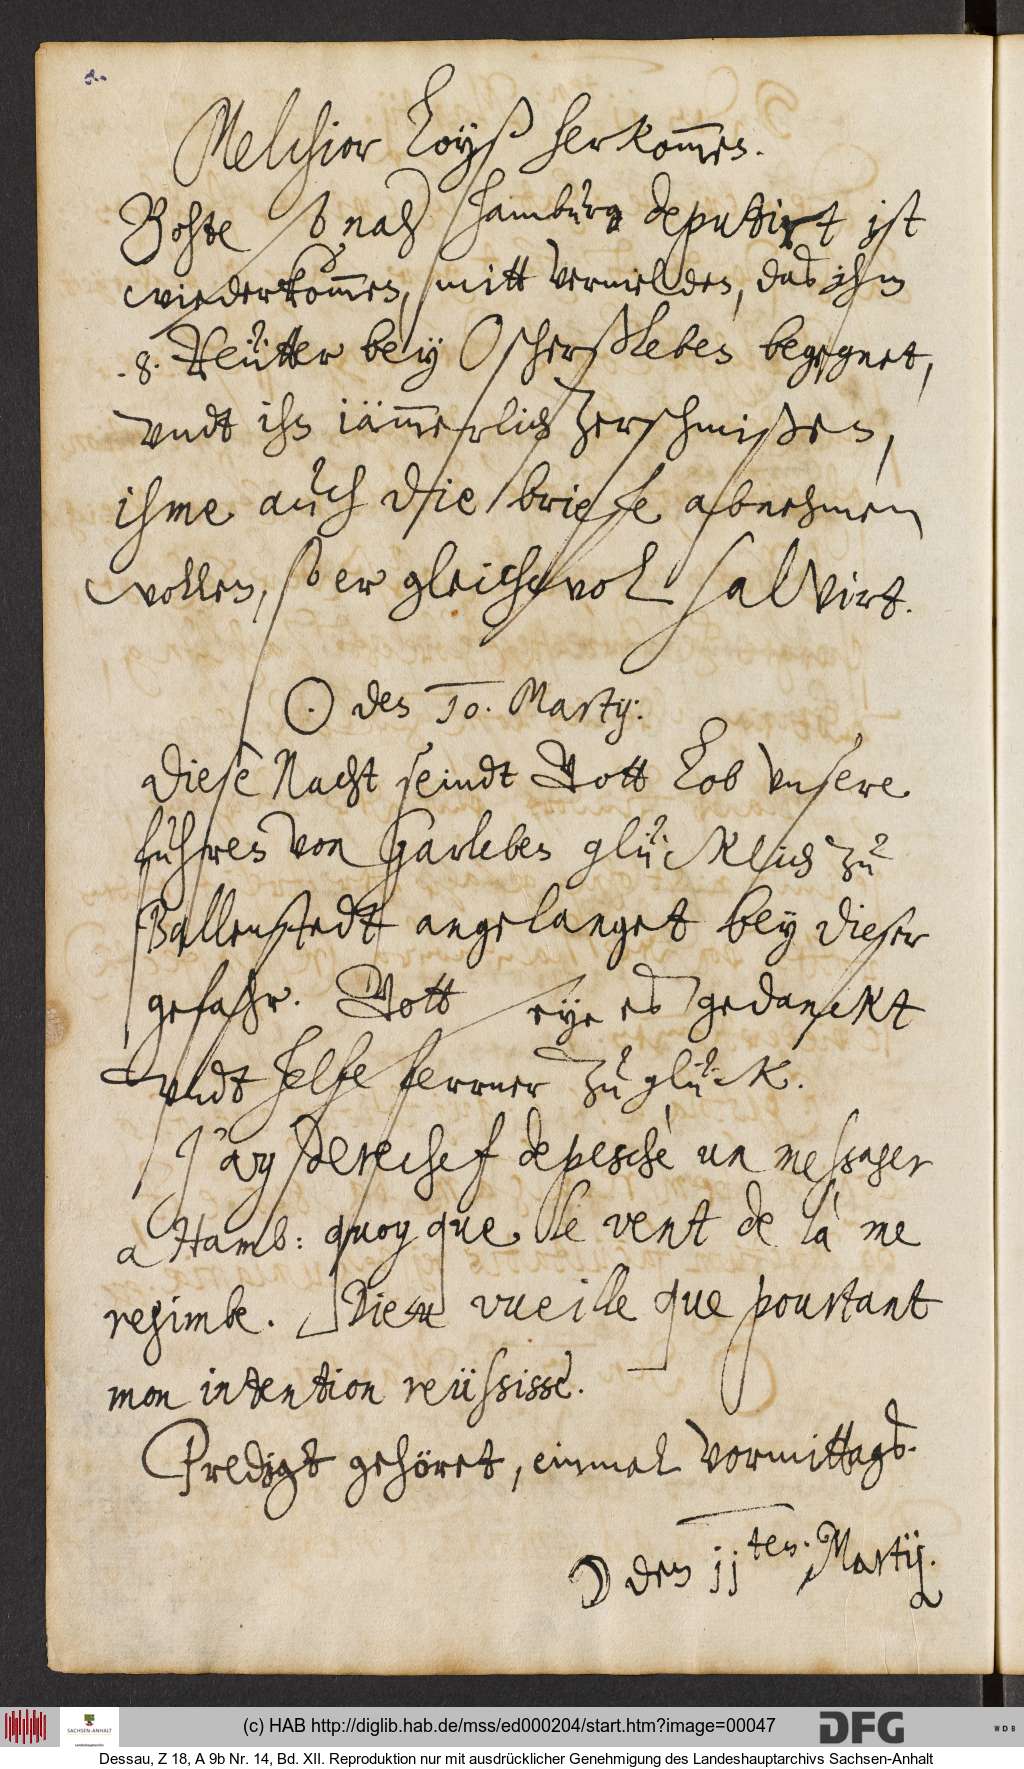 Melchior Loyß herkom̄en.
Bohte so nach Hamburg deputirt ist
wiederkom̄en, mitt vermelden, das ihm
.8. Reütter bey Oscherßleben begegnet,
vndt ihn iäm̄erlich zerschmißen,
ihme auch die briefe abnehmen
wollen, so er gleichwol salvirt.
⊙ den 10. Martij:
Diese Nacht seindt Gott lob vnsere
fuhren von Garleben glücklich zu
Ballenstedt angelanget bey dieser
gefahr. Gott seye es gedanckt
vndt helfe ferrner zu glück.
J'ay derechef depeschè un messager
a Hamb: quoy que le vent de là me
regimbe. Dieu vueille que pourtant
mon intention reüssisse.
Predigt gehöret, einmal vormittags.
☽ den 11ten. Martij.
(c) HAB http://diglib.hab.de/mss/ed000204/start.htm?image=00047
SACHSEN-ANHALT
DFG
WDB
Dessau, Z 18, A 9b Nr. 14, Bd. XII. Reproduktion nur mit ausdrücklicher Genehmigung des Landeshauptarchivs Sachsen-Anhalt